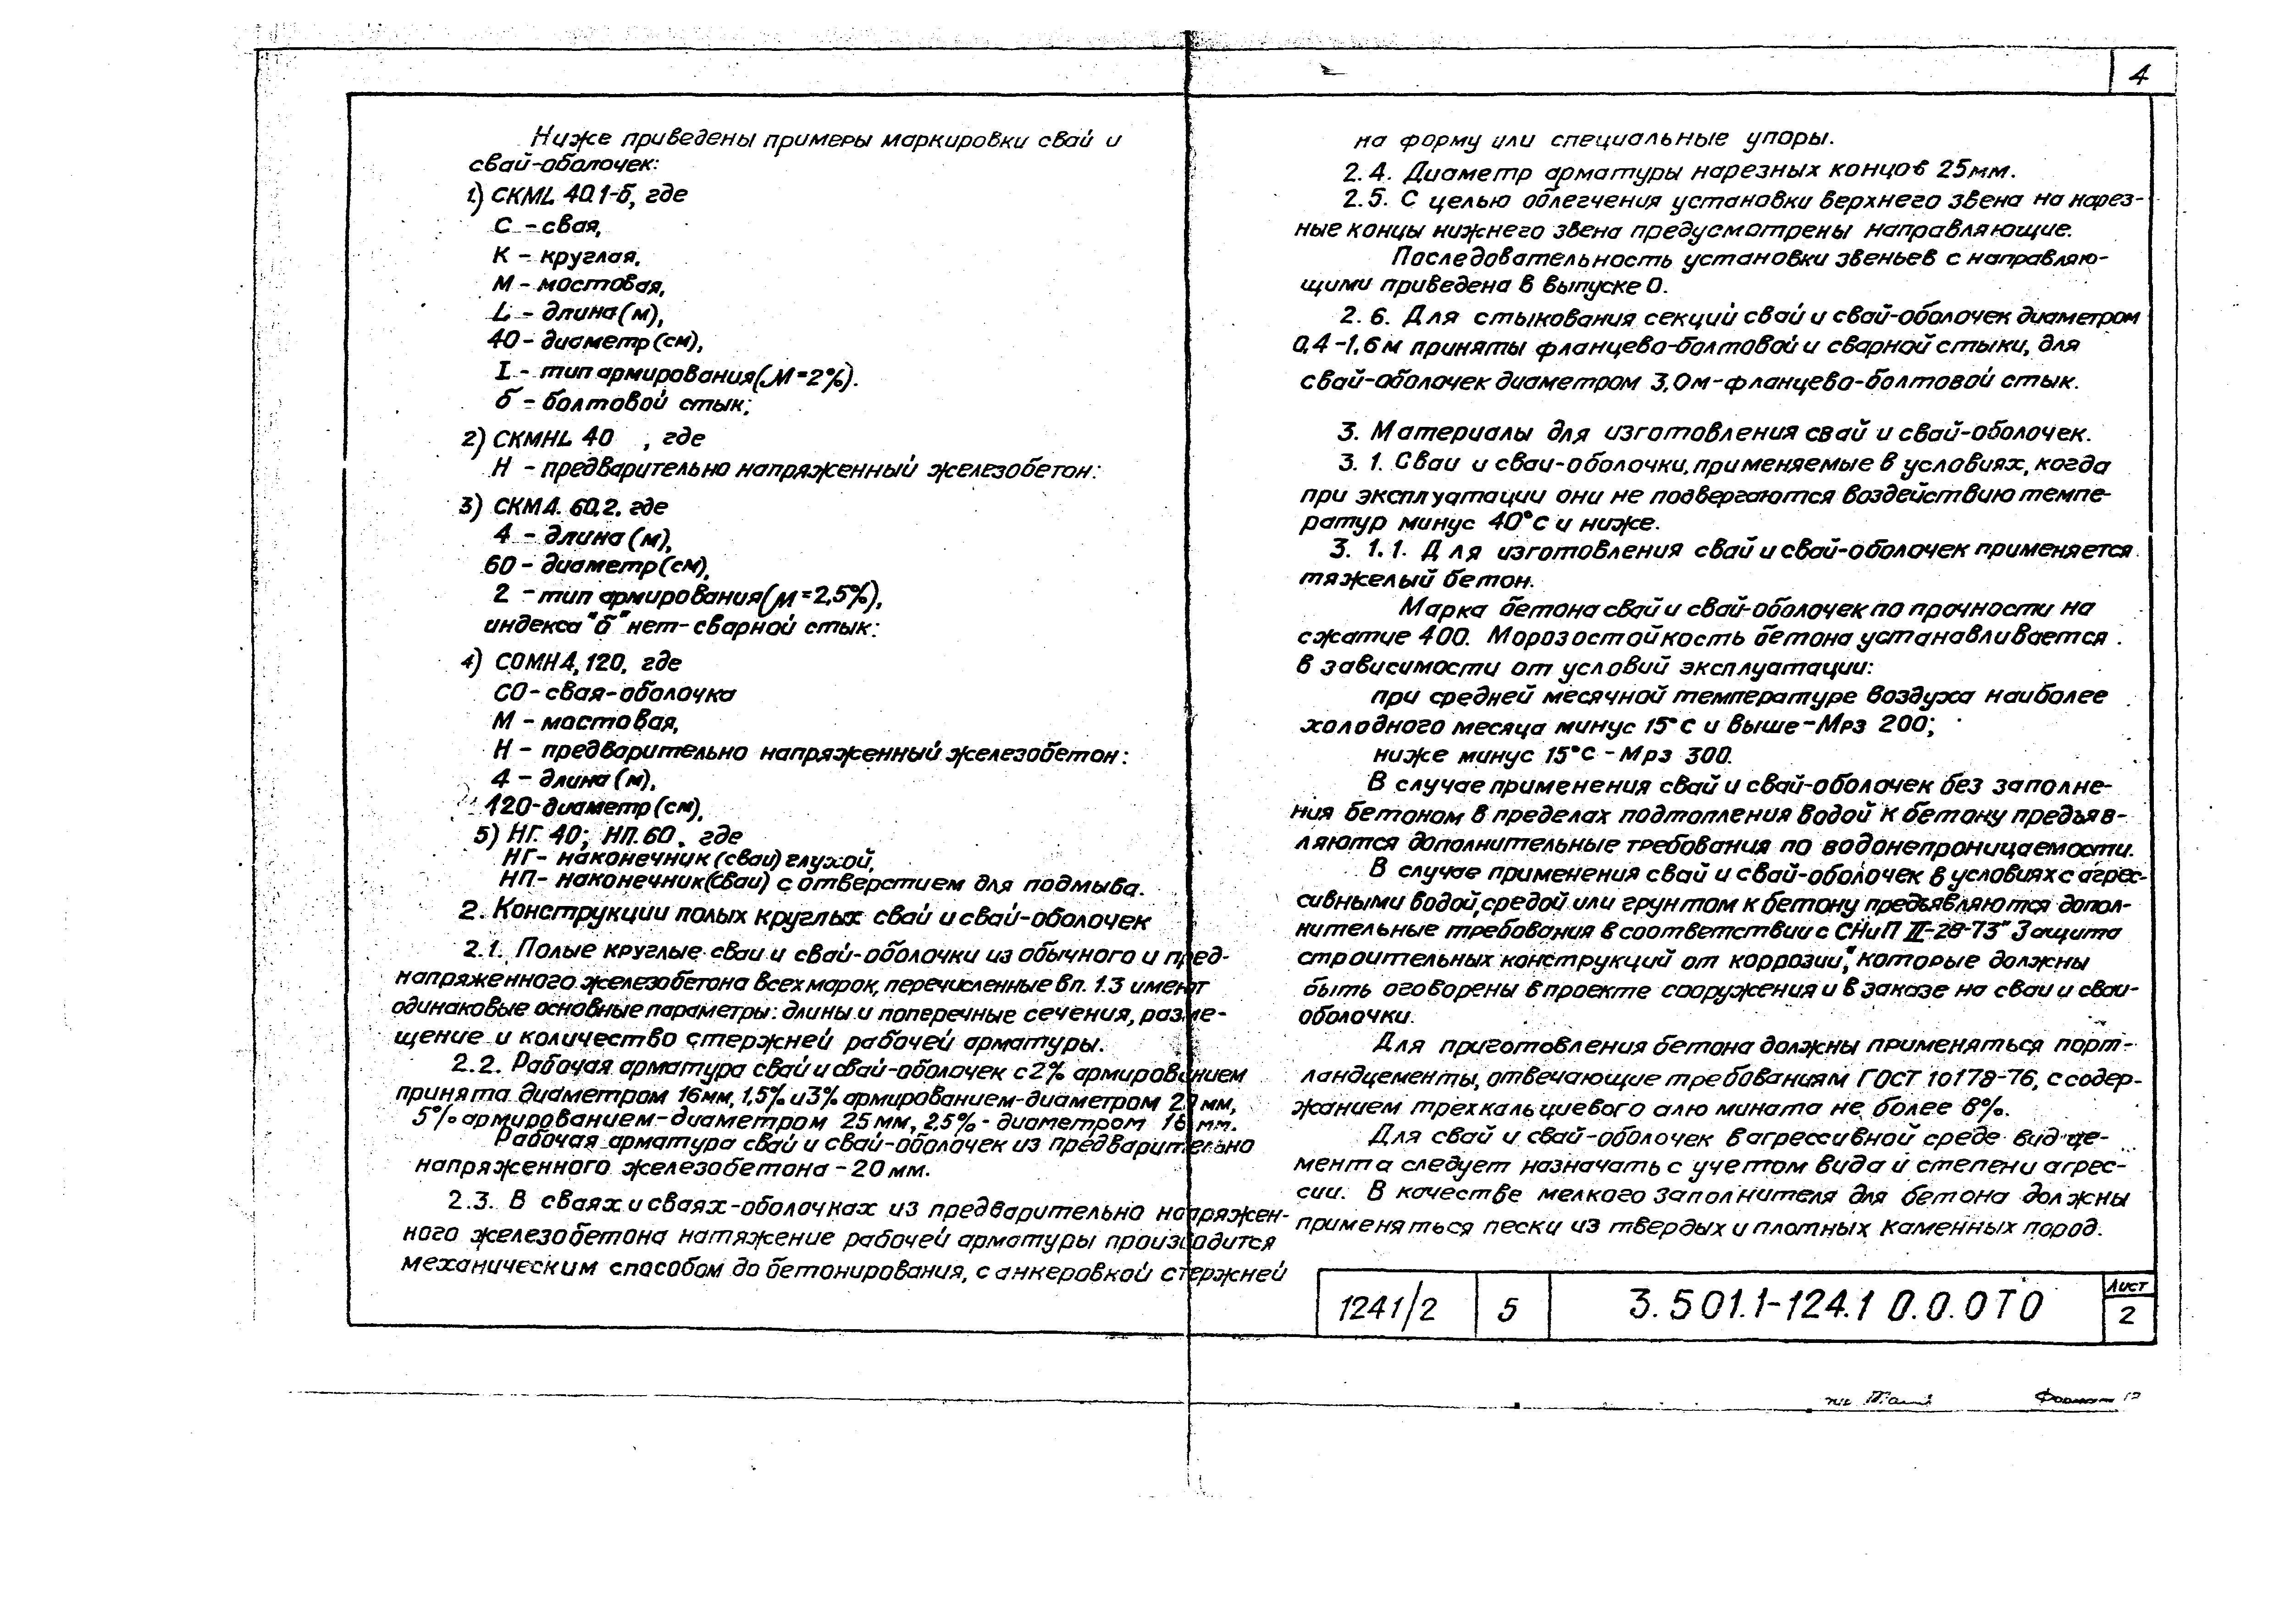 4
Ниже приведены примеры маркировки свай и
свай-оболочек:
1) СКМL 40.1-б, где
С - свая,
К - круглая,
М - мостовая,
L - длина (м),
40 - диаметр (см),
I - тип армирования (М=2%).
б - болтовой стык;
2) СКМНL 40 , где
Н - предварительно напряженный железобетон:
3) СКМ4. 60.2. где
4 - длина (м),
60 - диаметр (см),
2 - тип армирования (М=2,5%),
индекса "б" нет - сварной стык:
4) СОМН4, 120, где
СО - свая-оболочка
М - мостовая,
Н - предварительно напряженный железобетон:
4 - длина (м),
120 - диаметр (см),
5) НГ. 40; НП. 60. где
НГ - наконечник (сваи) глухой,
НП - наконечник (сваи) с отверстием для подмыва.
2. Конструкции полых круглых свай и свай-оболочек
2.1. Полые круглые сваи и свай-оболочки из обычного и пред-
напряженного железобетона всех марок, перечисленные в п. 1.3 имеют
одинаковые основные параметры: длины и поперечные сечения, разме-
щение и количество стержней рабочей арматуры.
2.2. Рабочая арматура свай и свай-оболочек с 2% армированием
принята диаметром 16мм, 1,5% и 3% армированием-диаметром мм,
5% армированием-диаметром 25мм, 2,5% - диаметром 16 мм.
Рабочая арматура свай и свай-оболочек из предварительно
напряженного железобетона - 20мм.
2.3. В сваях и сваях-оболочках из предварительно напряжен-
ного железобетона натяжение рабочей арматуры производится
механическим способом до бетонирования, с анкеровкой стержней
на форму или специальные упоры.
2.4. Диаметр арматуры нарезных концов 25мм.
2.5. С целью облегчения установки верхнего звена на нарез-
ные концы нижнего звена предусмотрены направляющие.
Последовательность установки звеньев с направляю-
щими приведена в выпуске 0.
2.6. Для стыкования секций свай и свай-оболочек диаметром
0,4-1,6м приняты фланцево-болтовой и сварной стыки, для
свай-оболочек диаметром 3,0м-фланцево-болтовой стык.
3. Материалы для изготовления свай и свай-оболочек.
3.1. Сваи и сваи-оболочки, применяемые в условиях, когда
при эксплуатации они не подвергаются воздействию темпе-
ратур минус 40°С и ниже.
3.1.1. Для изготовления свай и свай-оболочек применяется
тяжелый бетон.
Марка бетона свай и свай-оболочек по прочности на
сжатие 400. Морозостойкость бетона устанавливается
в зависимости от условий эксплуатации:
при средней месячной температуре воздуха наиболее
холодного месяца минус 15°С и выше-Мрз 200;
ниже минус 15°С - Мрз 300.
В случае применения свай и свай-оболочек без заполне-
ния бетоном в пределах подтопления водой к бетону предъяв-
ляются дополнительные требования по водонепроницаемости.
В случае применения свай и свай-оболочек в условиях с агрес-
сивными водой, средой или грунтом к бетону предъявляются допол-
нительные требования в соответствии с СНиП II-28-73 "Защита
строительных конструкций от коррозии", которые должны
быть оговорены в проекте сооружения и в заказе на сваи и сваи-
оболочки.
Для приготовления бетона должны применяться порт-
ландцементы, отвечающие требованиям ГОСТ 10178-76, с содер-
жанием трехкальциевого алюмината не более 8%.
Для свай и свай-оболочек в агрессивной среде вид це-
мента следует назначать с учетом вида и степени агрес-
сии. В качестве мелкого заполнителя для бетона должны
применяться пески из твердых и плотных каменных пород.
1241/2 5 3.501.1-124.1 0.0.0ТО Лист 2
Формат